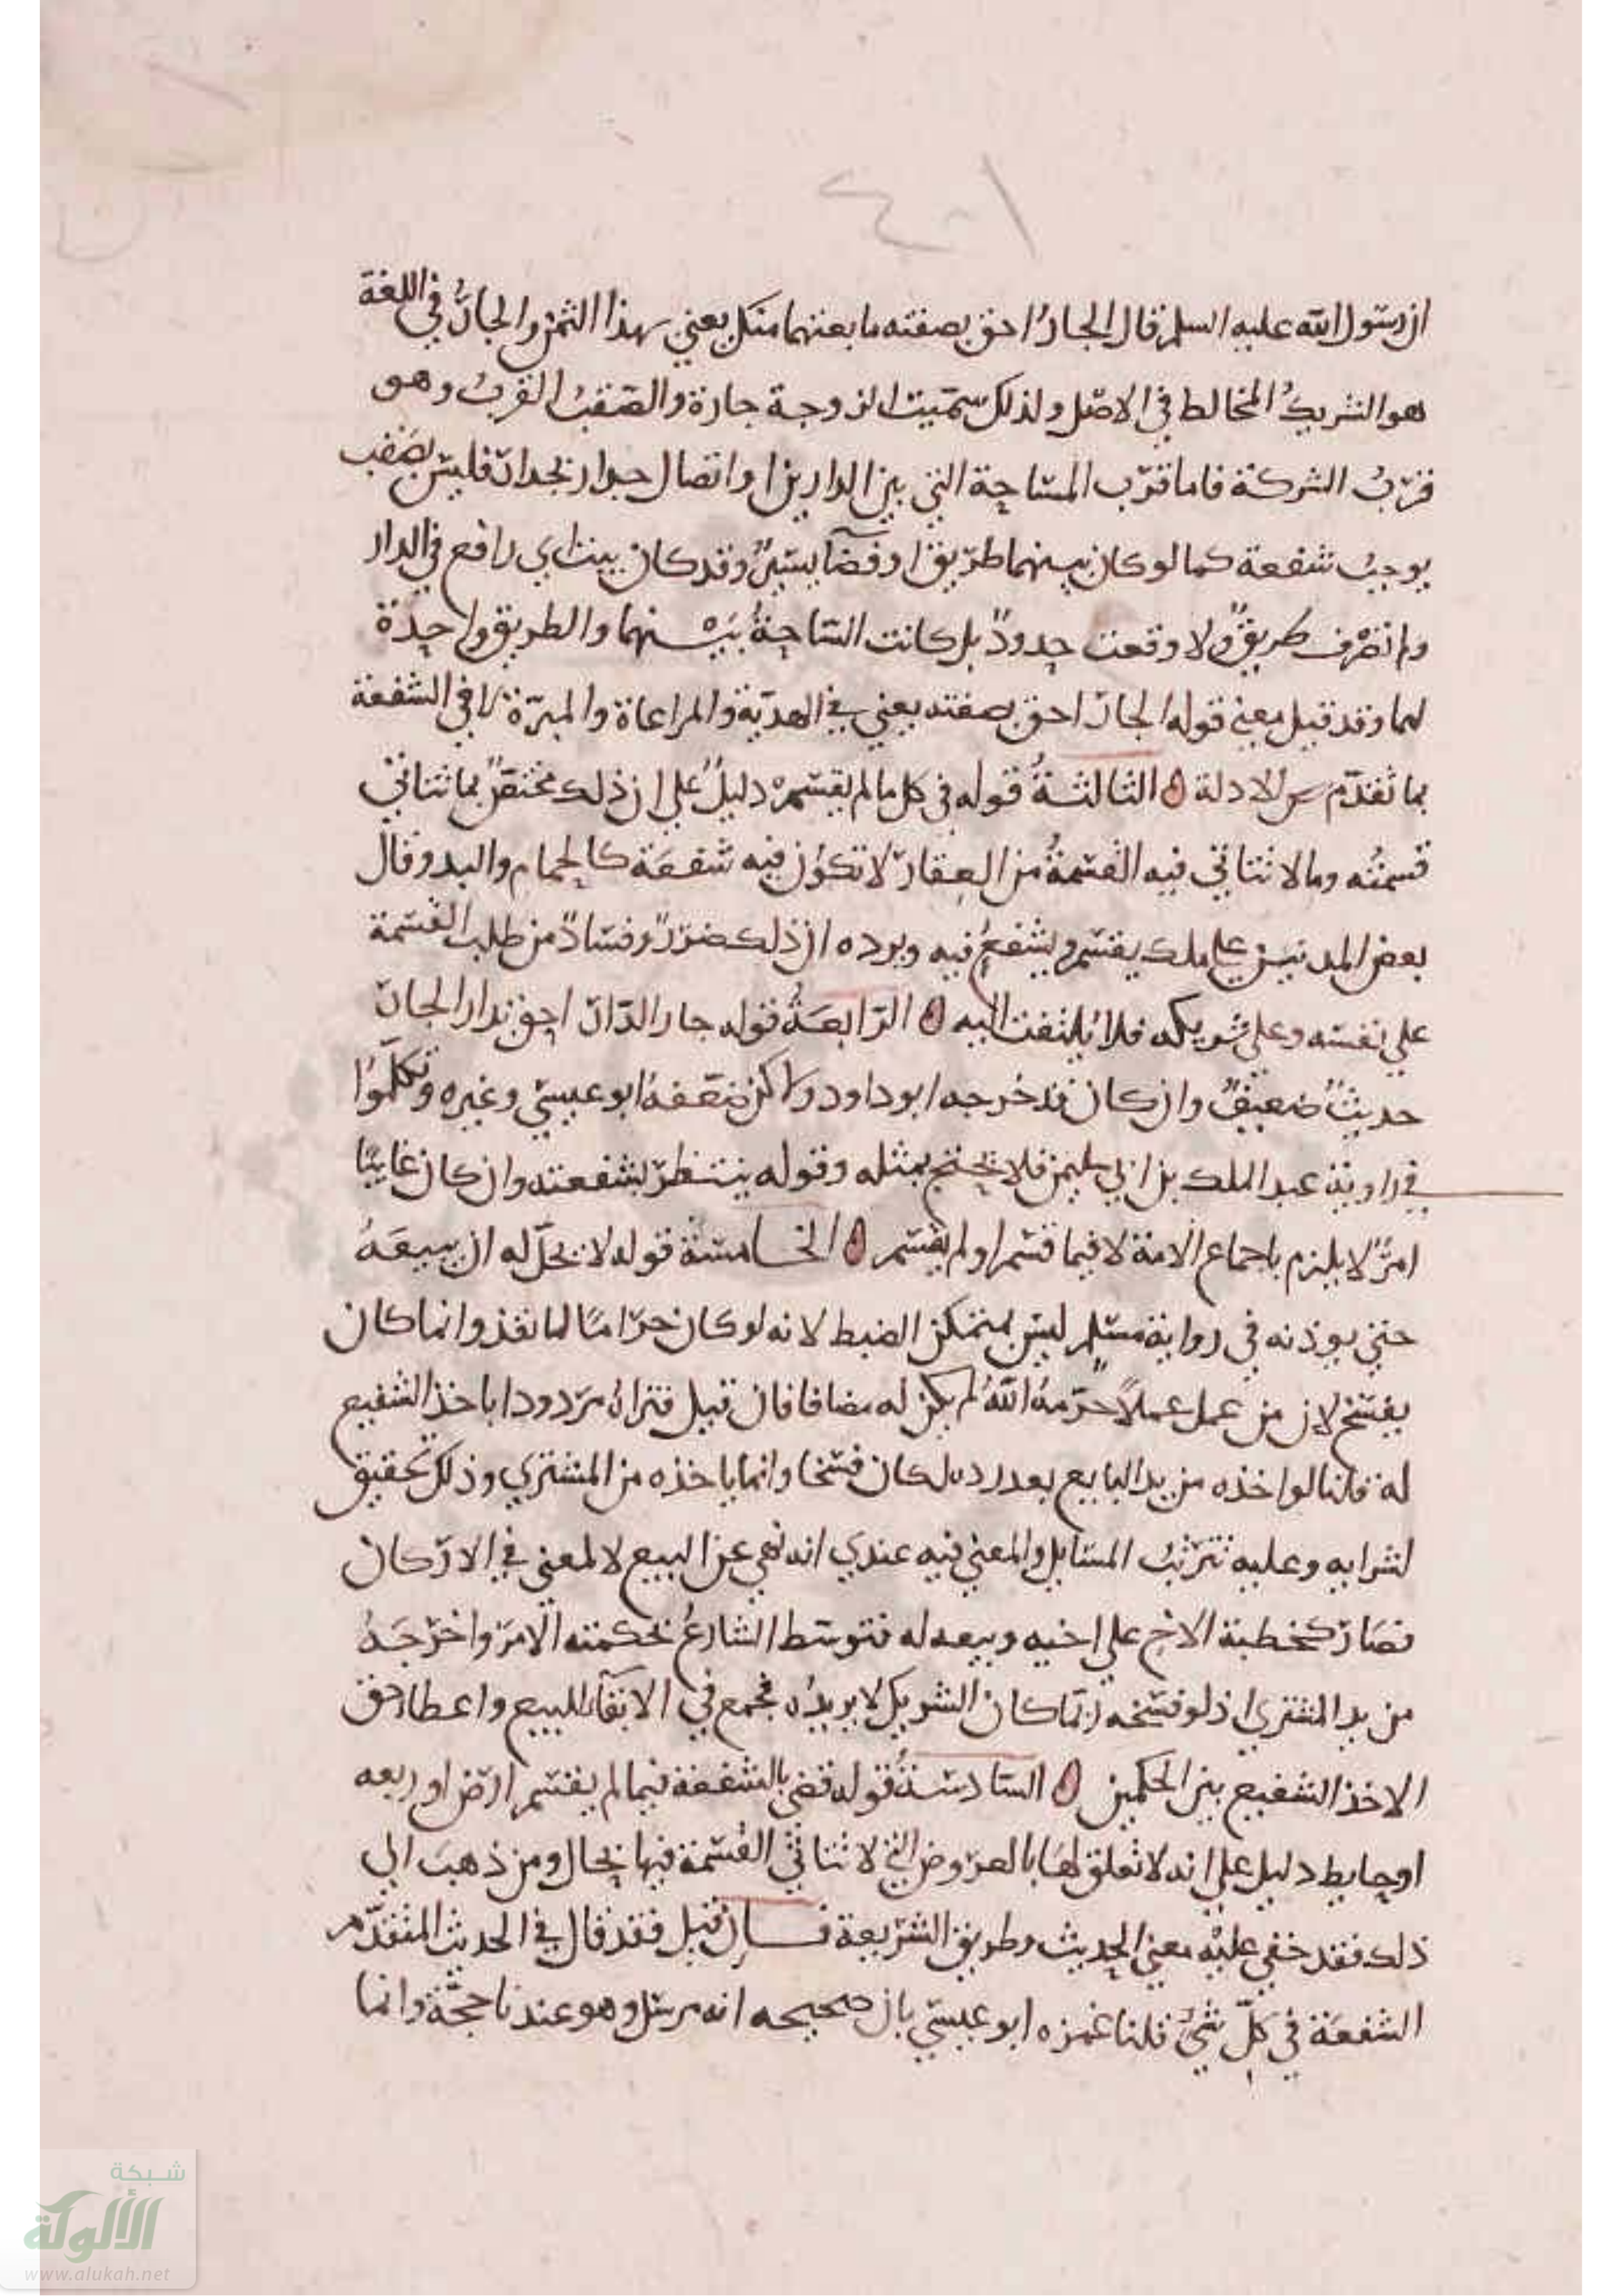 ان رسول الله عليه السلم قال الجار احق بصقبه ما بعتهما منك يعني بهذا الثمن والجار في اللغة
هو الشريك المخالط في الاصل ولذلك سميت الزوجة جارة والصقب القرب وهو
قرب الشركة فاما قرب المساحة التي بين الدارين او اتصال جدار بجدار فليس بصقب
يوجب شفعة كما لو كان بينهما طريق او فضآ يسير وقد كان بيتا ابي رافع في الدار
ولم تصرف طريق ولا وقعت حدود بل كانت الساحة بينهما والطريق واحدة
لهما وقد قيل معنى قوله الجار احق بصقبه يعني في الهدية والمراعاة والمبرة لا في الشفعة
بما تقدم من الادلة الثالثة قوله في كل ما لم يقسم دليل على ان ذلك مختص بما تتاتى
قسمته وما لا تتاتى فيه القسمة من العقار لا تكون فيه شفعة كالحمام والبد وقال
بعض المدنيين على ملك يقسم ويشفع فيه ويرده ان ذلك ضرر وفساد من طلب القسمة
على نفسه وعلى شريكه فلا يلتفت اليه الرابعة قوله جار الدار احق بدار الجار
حديث ضعيف وان كان قد خرجه ابو داود ولاكن ضعفه ابو عيسى وغيره وتكلموا
في راويه عبد الملك بن ابي سليمن فلا يحتج بمثله وقوله ينتظر بشفعته وان كان غايبا
امر لا يلزم باجماع الامة لا فيما قسم او لم يقسم الخامسة قوله لا يحل له ان يبيعه
حتى يوذنه في رواية مسلم ليس بمتمكن الضبط لانه لو كان حراما لما نفذ وانما كان
يفسخ لان من عمل عملا حرمه الله لم يكن له مضافا فان قيل فتراه مردودا باخذ الشفيع
له قلنا لو اخذه من يد البايع بعد رده لكان فسخا وانما ياخذه من المشتري وذلك تحقيق
لشرايه وعليه تترتب المسايل والمعنى فيه عندي انه نهي عن البيع لا لمعنى في الاركان
فصار كخطبة الاخ على اخيه وبيعه له فتوسط الشارع بحكمته الامر واخرجه
من يد المشتري اذ لو فسخه ربما كان الشريك لا يريده فجمع في الابقآ للبيع واعطا حق
الاخذ الشفيع بين الحكمين السادسة قوله قضى بالشفعة فيما لم يقسم ارض او ربعه
او حايط دليل على انه لا تعلق لها بالعروض التي لا تتاتى القسمة فيها بحال ومن ذهب الى
ذلك فقد خفي عليه معنى الحديث وطريق الشريعة فان قيل فقد قال في الحديث المتقدم
الشفعة في كل شي قلنا غمزه ابو عيسى بان صحيحه انه مرسل وهو عندنا حجة وانما
شبكة
الألوكة
www.alukah.net